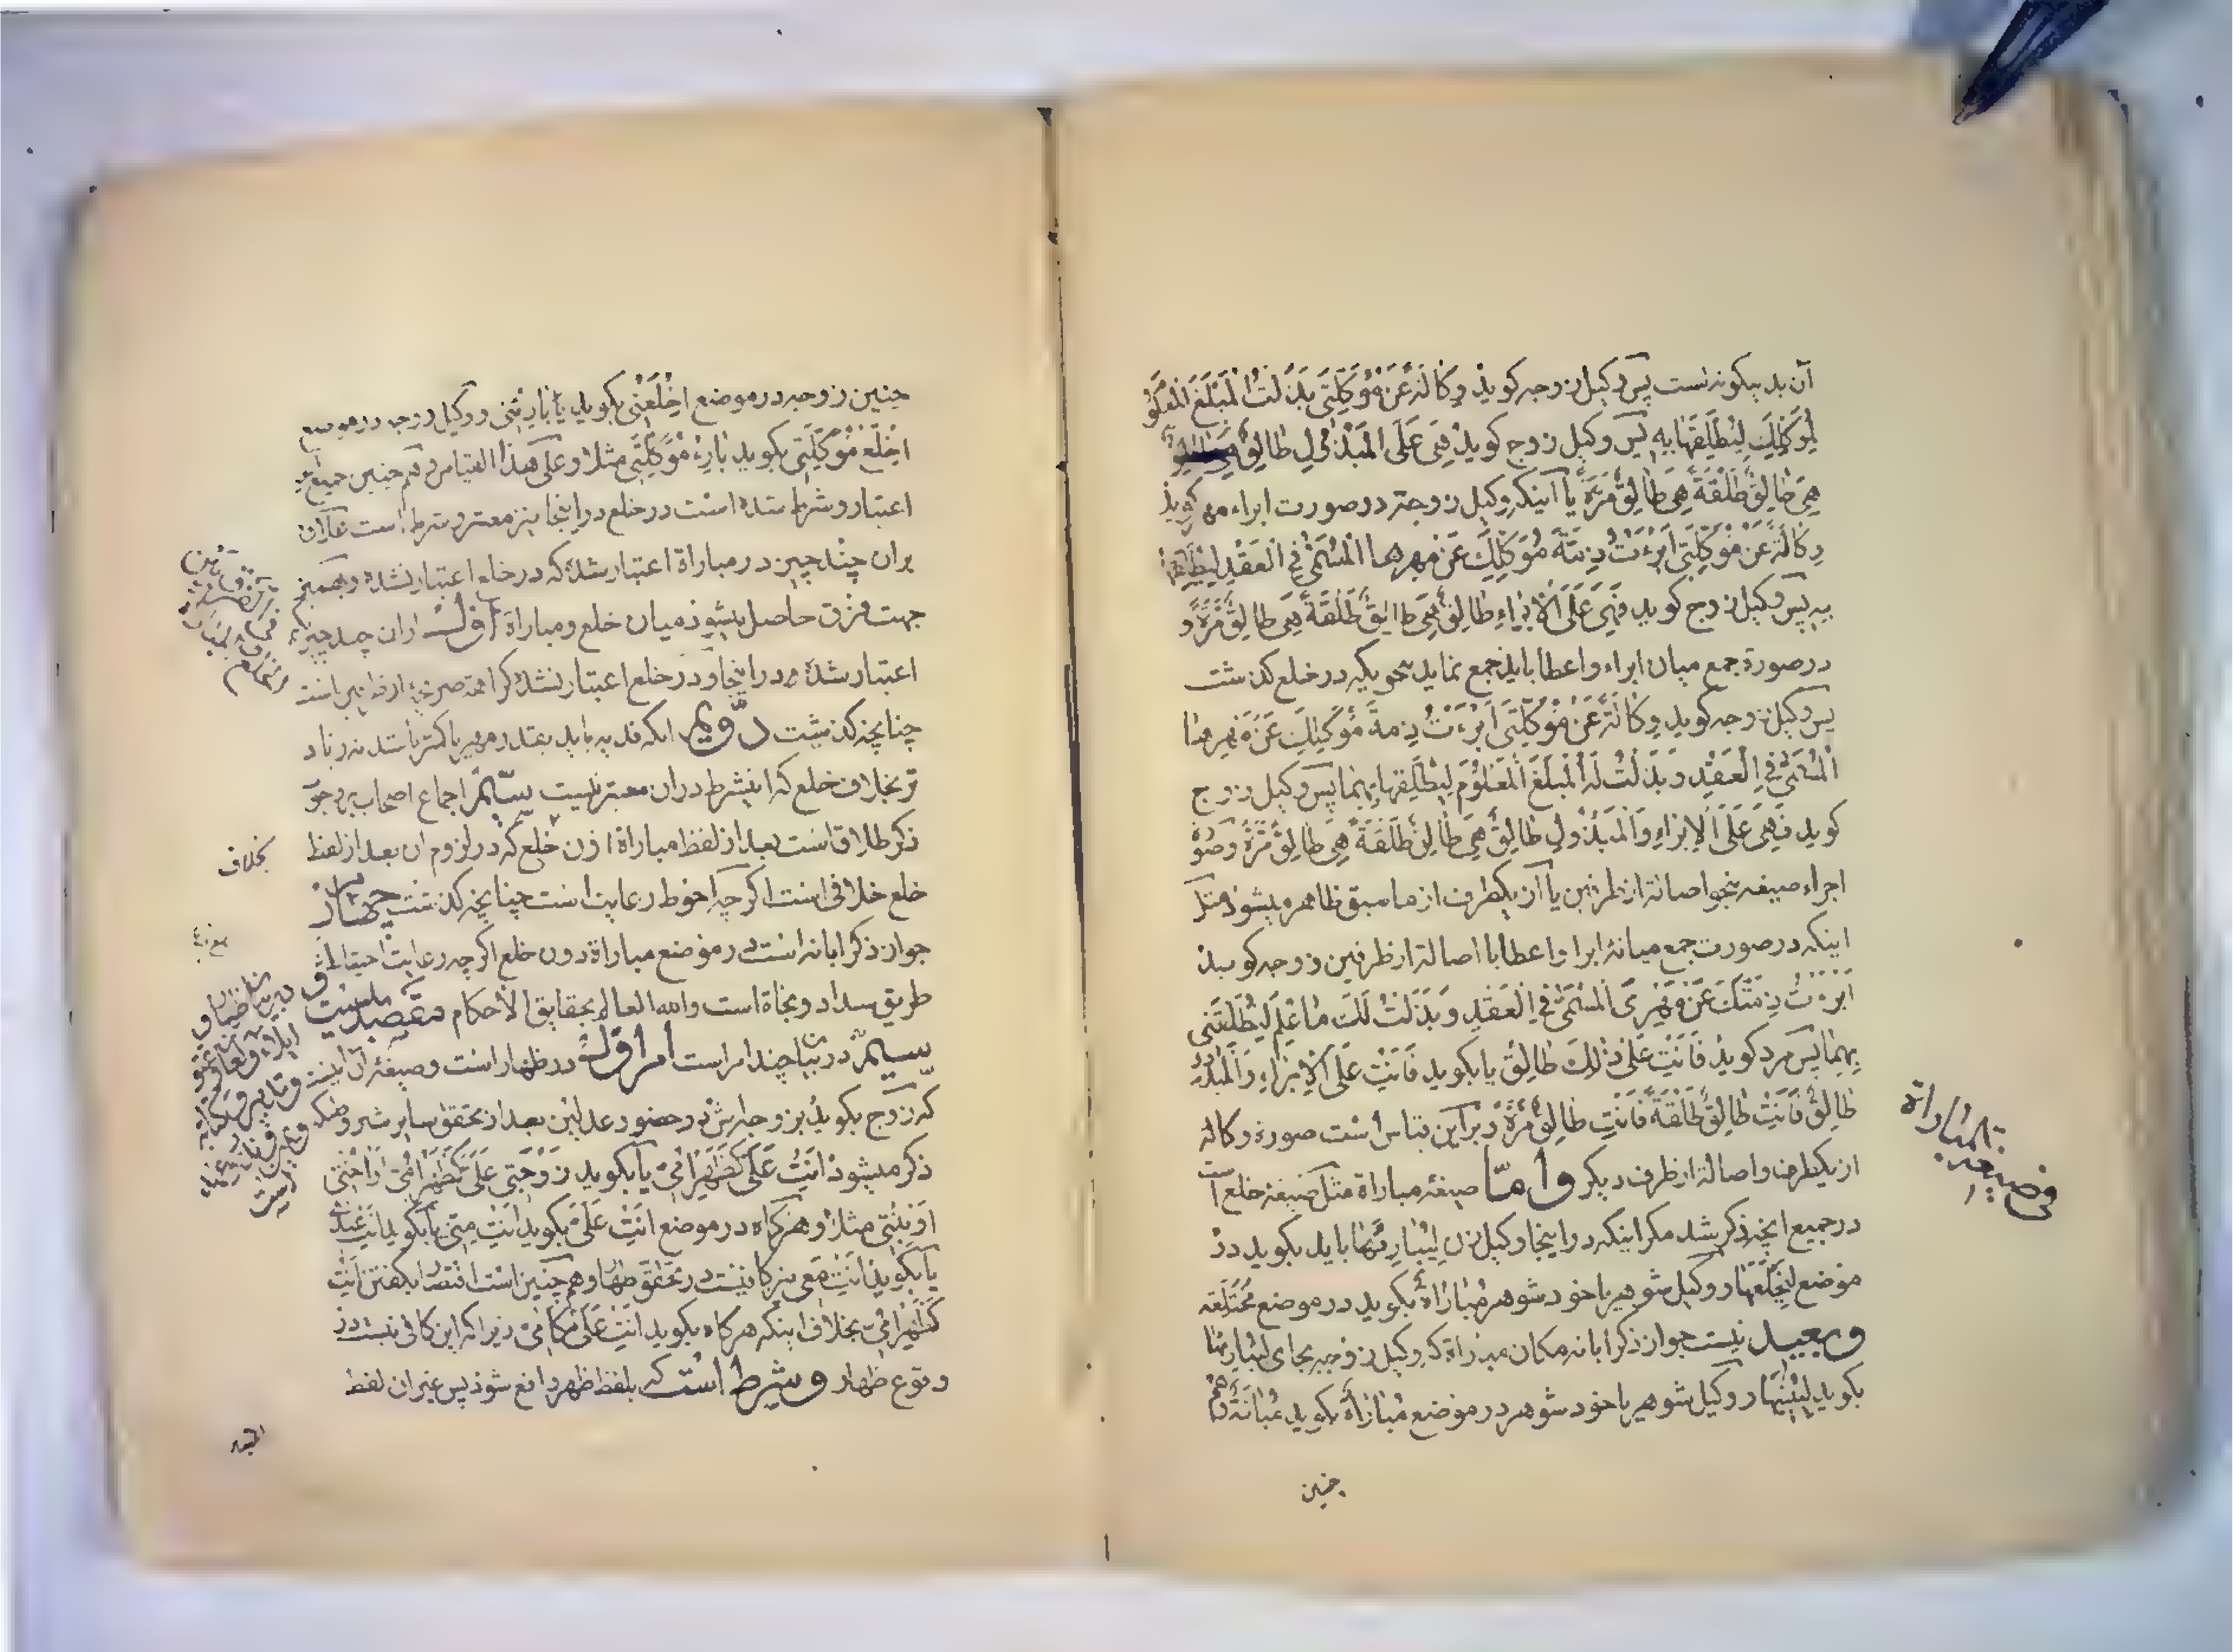 آن بدینگونه است پس وکیل زوجه کوید وِکٰالَةً عَنْ مُوَکِّلَتی بَذَلْتُ الْمَبْلَغَ الْمَعْلُوُ
لِمُوَکِّلِكَ لِیُطَلِّقَهٰا بِهِ پس وکیل زوج کوید فَهِیَ عَلَی الْمَبْذُولِ طٰالِقٌ
هِیَ طٰالِقٌ طَلْقَةً هِیَ طٰالِقٌ مَرَّةً یا آنیکه وکیل زوجه در صورت ابراء مهر کوید
وِکٰالَةً عَنْ مُوَکِّلَتی اَبْرَءْتُ ذِمَّةَ مُوَکِّلِكَ عَنْ مهرها الْمُسَمّٰی فِی الْعَقْدِ لِیُطَلِّقَهٰا
به پس وکیل زوج کوید فَهِیَ عَلَی الْاِبْرٰاءِ طٰالِقٌ هِیَ طٰالِقٌ طَلْقَةً هِیَ طٰالِقٌ مَرَّةً و
در صورة جمع میان ابراء و اعطا باید جمع نماید بنحویکه در خلع کذشت
پس وکیل زوجه کوید وِکٰالَةً عَنْ مُوَکِّلَتی اَبْرَءْتُ ذِمَةَ مُوَکِّلِكَ عَنْ مَهْرِهٰا
الْمُسَمّٰی فِی الْعَقْدِ وَ بَذَلْتُ لَهُ الْمَبْلَغَ الْمَعْلُوْمَ لِیُطَلِّقَهٰا بِهِمٰا پس وکیل زوج
کوید فَهِیَ عَلَی الْاِبْرٰاءِ وَ الْمَبْذُولِ طٰالِقٌ هِیَ طٰالِقٌ طَلْقَةً هِیَ طٰالِقٌ مَرَّةً و صورة
اجراء صیغه بنحو اصالة از طرفین یا از یکطرف از ما سبق ظاهر میشود مثل
اینکه در صورت جمع میانهٔ ابرا و اعطا با اصالة از طرفین زوجه کوید
اَبْرَءْتُ ذِمَّتَكَ عَنْ مَهْرِیَ الْمُسَمّٰی فِی الْعَقْدِ وَ بَذَلْتُ لَكَ مٰا عُلِمَ لِتُطَلِّقَنی
بِهِمٰا پس مرد کوید فَاَنْتِ عَلٰی ذٰلِكَ طٰالِقٌ یا بکوید فَاَنْتِ عَلَی الْاِبْرٰاءِ وَ الْمَبْذُولِ
طٰالِقٌ فَاَنْتِ طٰالِقٌ طَلْقَةً فَاَنْتِ طٰالِقٌ مَرَّةً و براین قیاس است صورة وکالة
از یکطرف و اصالة از طرف دیکر و امّا صیغهٔ مباراة مثل صیغهٔ خلع است
در جمیع آنچه ذکر شد مکر اینکه در اینجا وکیل زن لِیُبٰارِئَهٰا باید بکوید در
موضع لِیَخْلَعَهٰا و وکیل شوهر یا خود شوهر مُبٰارٰاةً بکوید در موضع مُخْتَلِعَة
و بعید نیست جواز ذکر ابانه مکان مباراة که وکیل زوجه بجای لیبارئها
بکوید لِیُبینَهٰا و وکیل شوهر یا خود شوهر در موضع مُبٰارٰاةً بکوید مُبٰانَةً هم
چنین
فی صیغة المباراة
چنین زوجه در موضع اِخْلَعْنی بکوید یا بٰارِئْنی و وکیل زوجه در موضع
اِخْلَعْ مُوَکِّلَتی بکوید بٰارِءْ مُوَکِّلَتی مثلا و علی هذا القیاس و هم چنین جمیع آنچه
اعتبار و شرط شده است در خلع در اینجا نیز معتبر و شرط است علاوه
بران چند چیز در مباراة اعتبار شده که در خلع اعتبار نشده و بهمین
جهت فرق حاصل میشود میان خلع و مباراة اول از ان چند چیزیکه
اعتبار شده در اینجا و در خلع اعتبار نشده کراهة صریحه از طرفین است
چنانچه کذشت دوّیم انکه فدیه باید بقدر مهر یا کمتر باشد نه زیاد
تر بخلاف خلع که اینشرط دران معتبر نیست سیّم اجماع اصحاب بر وجوب
ذکر طلاق است بعد از لفظ مباراة دون خلع که در لزوم ان بعد از لفظ
خلع خلافی است اکرچه احوط رعایت است چنانچه کذشت چهار
جواز ذکر ابانه است در موضع مباراة دون خلع اکرچه رعایت احتیاط
طریق سداد و نجاة است والله العالم بحقایق الاحکام مقصد
سیم در بیان چند امر است امر اول در ظهار است و صیغهٔ آن اینست
که زوج بکوید بزوجه‌اش در حضور عدلین بعد از تحقق سایر شروط که
ذکر میشود اَنْتِ عَلَیَّ کَظَهْرِ اُمّی یا بکوید زَوْجَتی عَلَیَّ کَظَهْرِ اُمّی اَوْ اُخْتی
اَوْ بِنْتی مثلا و هرکاه در موضع اَنْتِ عَلَیَّ بکوید اَنْتِ مِنّی یا بکوید اَنْتِ عِنْدی
یا بکوید اَنْتِ مَعی نیز کافیست در تحقق ظهار و هم چنین است اقتصار بکفتن اَنْتِ
کَظَهْرِ اُمّی بخلاف اینکه هرکاه بکوید اَنْتِ عَلَیَّ کَاُمّی زیرا که این کافی نیست در
وقوع ظهار و شرط است که بلفظ ظهر واقع شود پس بغیر ان لفظ
بخلاف